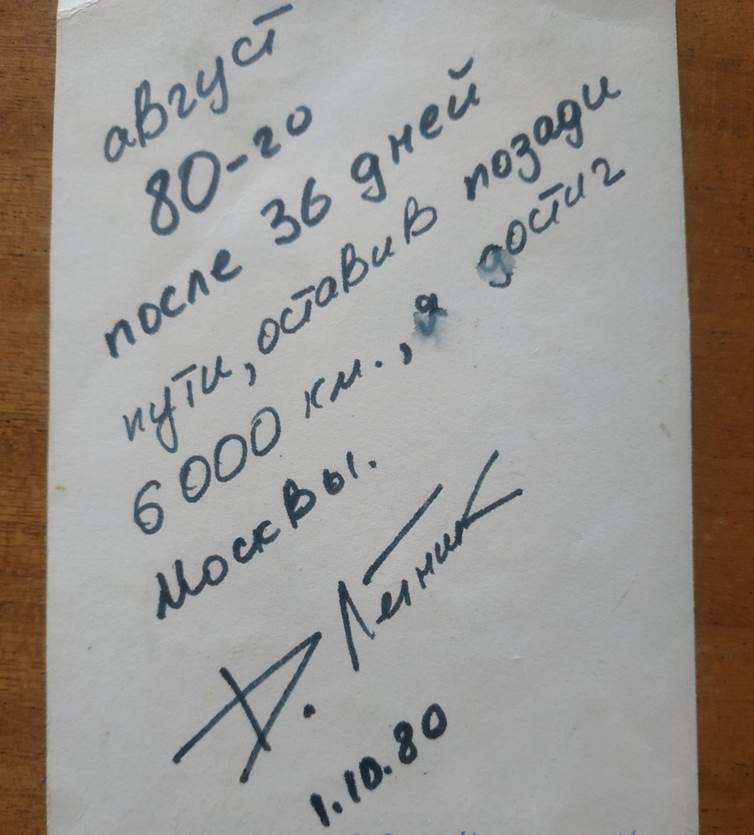 август
80-го
после 36 дней
пути, оставив позади
6000 км., я достиг
Москвы.
1.10.80